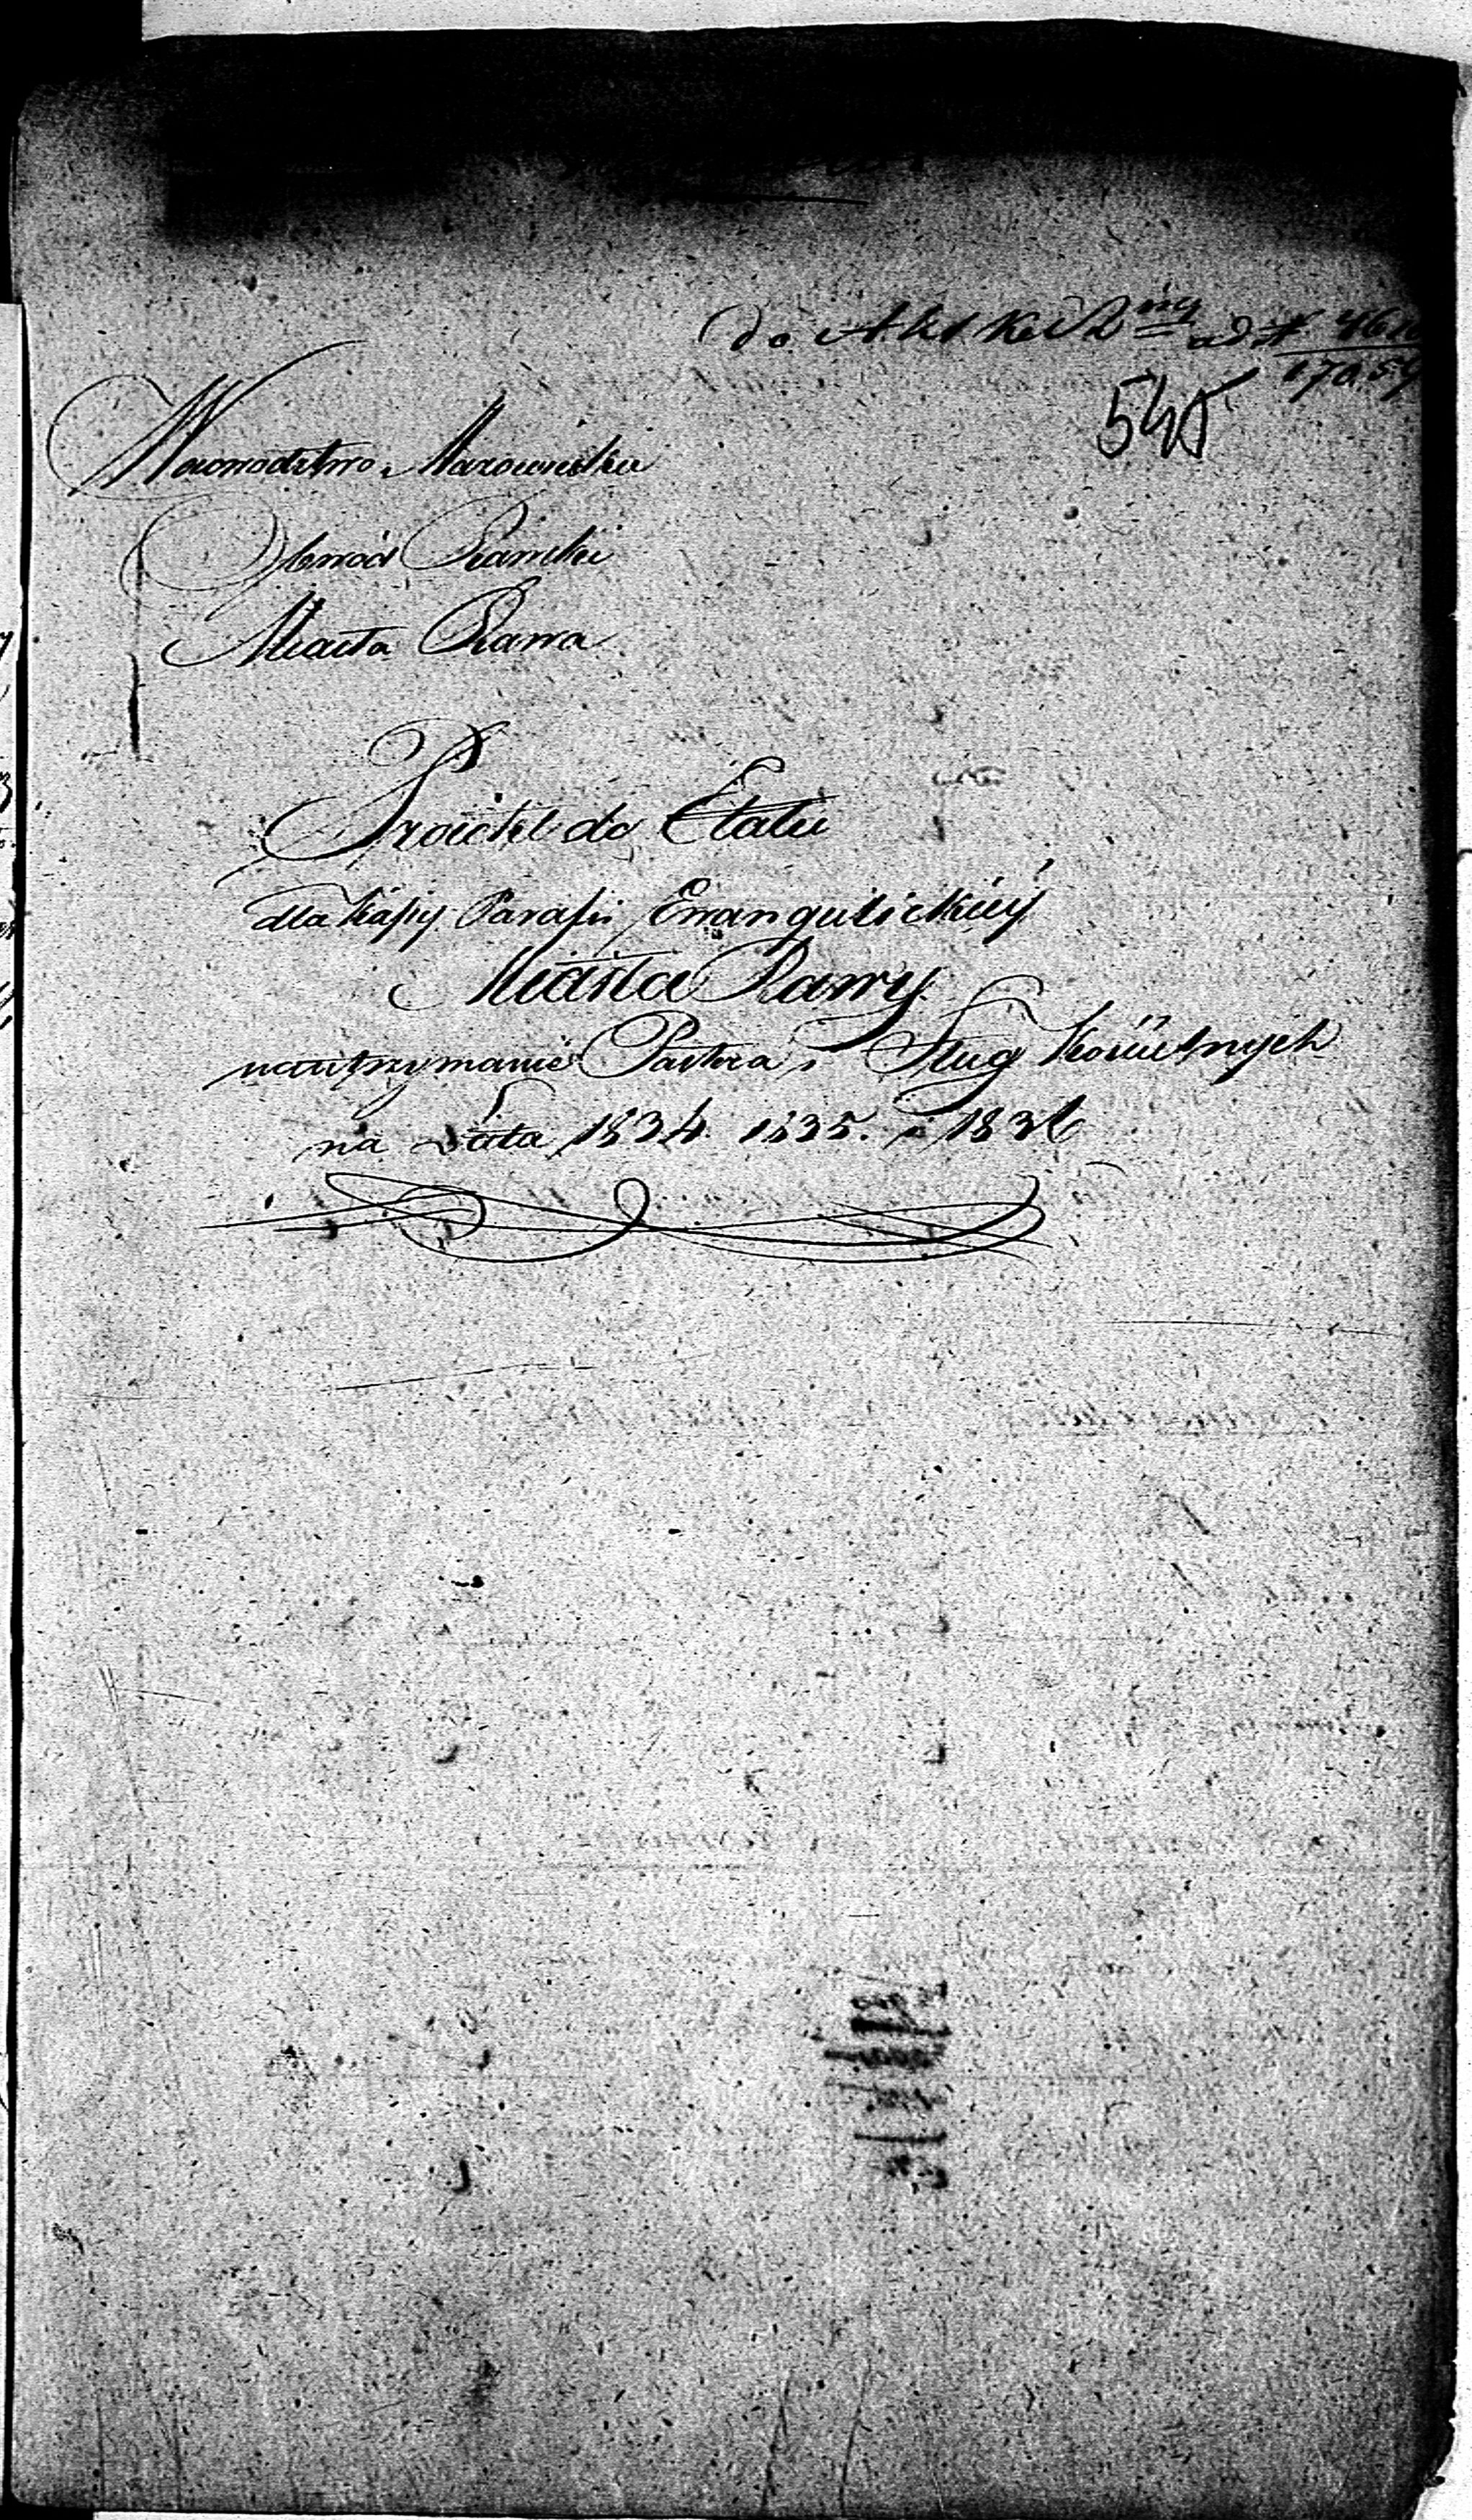 do Akt KRS
545
Woiewodztwo Mazowieckie
Obwód Rawski
Miasto Rawa
Proiekt do Etatu
dla Kassy Parafii Ewangelickiéy
Miasta Rawy
na utrzymanie Pastora i Sług Kościelnych
na Lata 1834. 1835. i 1836